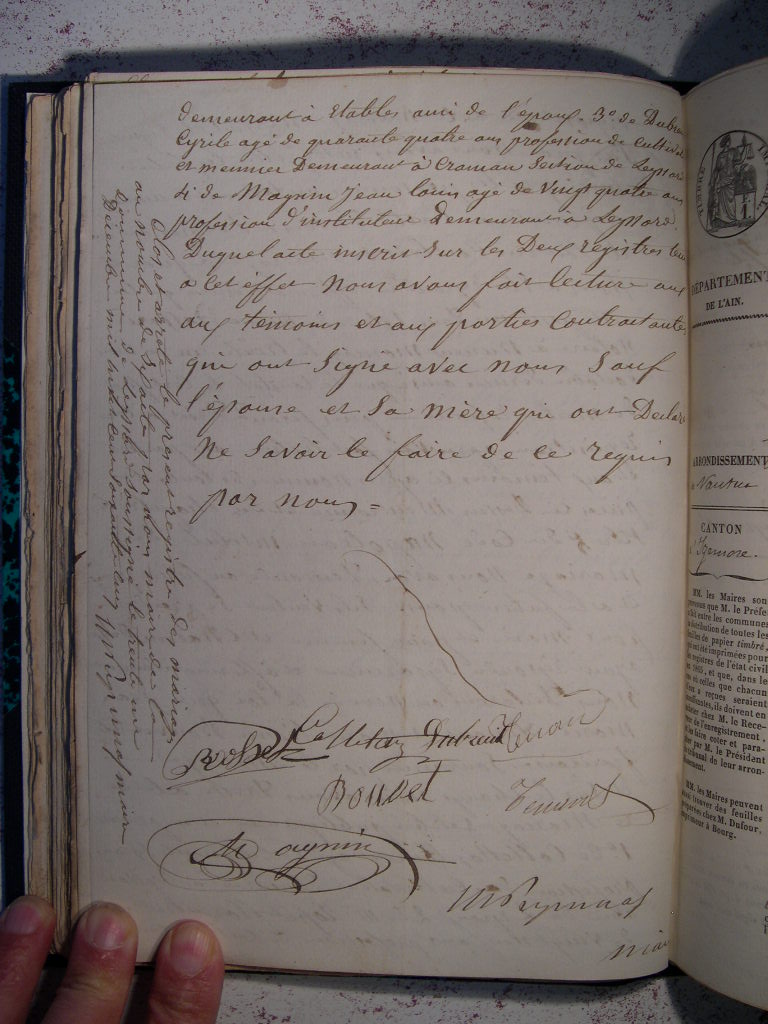 demeurant à Etables ami de l'époux. 3° de Dubreu
Cyrile agé de quarante quatre ans profession de cultivat
et meunier Demeurant à Craman Section de Leyssard
4 de Magnin Jean louis agé de vingt quatre ans
profession d'instituteur Demeurant à Leyssard.
Duquel acte inscrit sur les Deux registres tenu
a cet éffet nous avons fait lecture aux
aux temoins et aux parties Contractante
qui ont Signé avec nous Sauf
l'épouse et Sa mère qui ont Declaré
ne Savoir le faire de ce requis
par nous =
Clos et arrêté le present registre des mariages
au nombre de 3 parte par nous maire de la
Commune de Leyssard soussigné le trente un
Decembre mil huit cent soixante cinq
maire
Bouvet
Magnin
maire
TIMBRE IMPÉRIAL
DÉPARTEMENT
DE L'AIN.
ARRONDISSEMENT
Nantua
CANTON
d'Izernore
MM. les Maires son
prévenus que M. le Préfe
fait entre les communes
distribution de toutes les
feuilles de papier timbré,
ont été imprimées pour
registres de l'état civil
et que, dans le
où celles que chacun
a reçues seraient
insuffisantes, ils doivent en
chez M. le Rece-
de l'Enregistrement,
faire coter et para-
par M. le Président
tribunal de leur arron-
dissement.
MM. les Maires peuvent
trouver des feuilles
préparées chez M. Dufour,
imprimeur à Bourg.